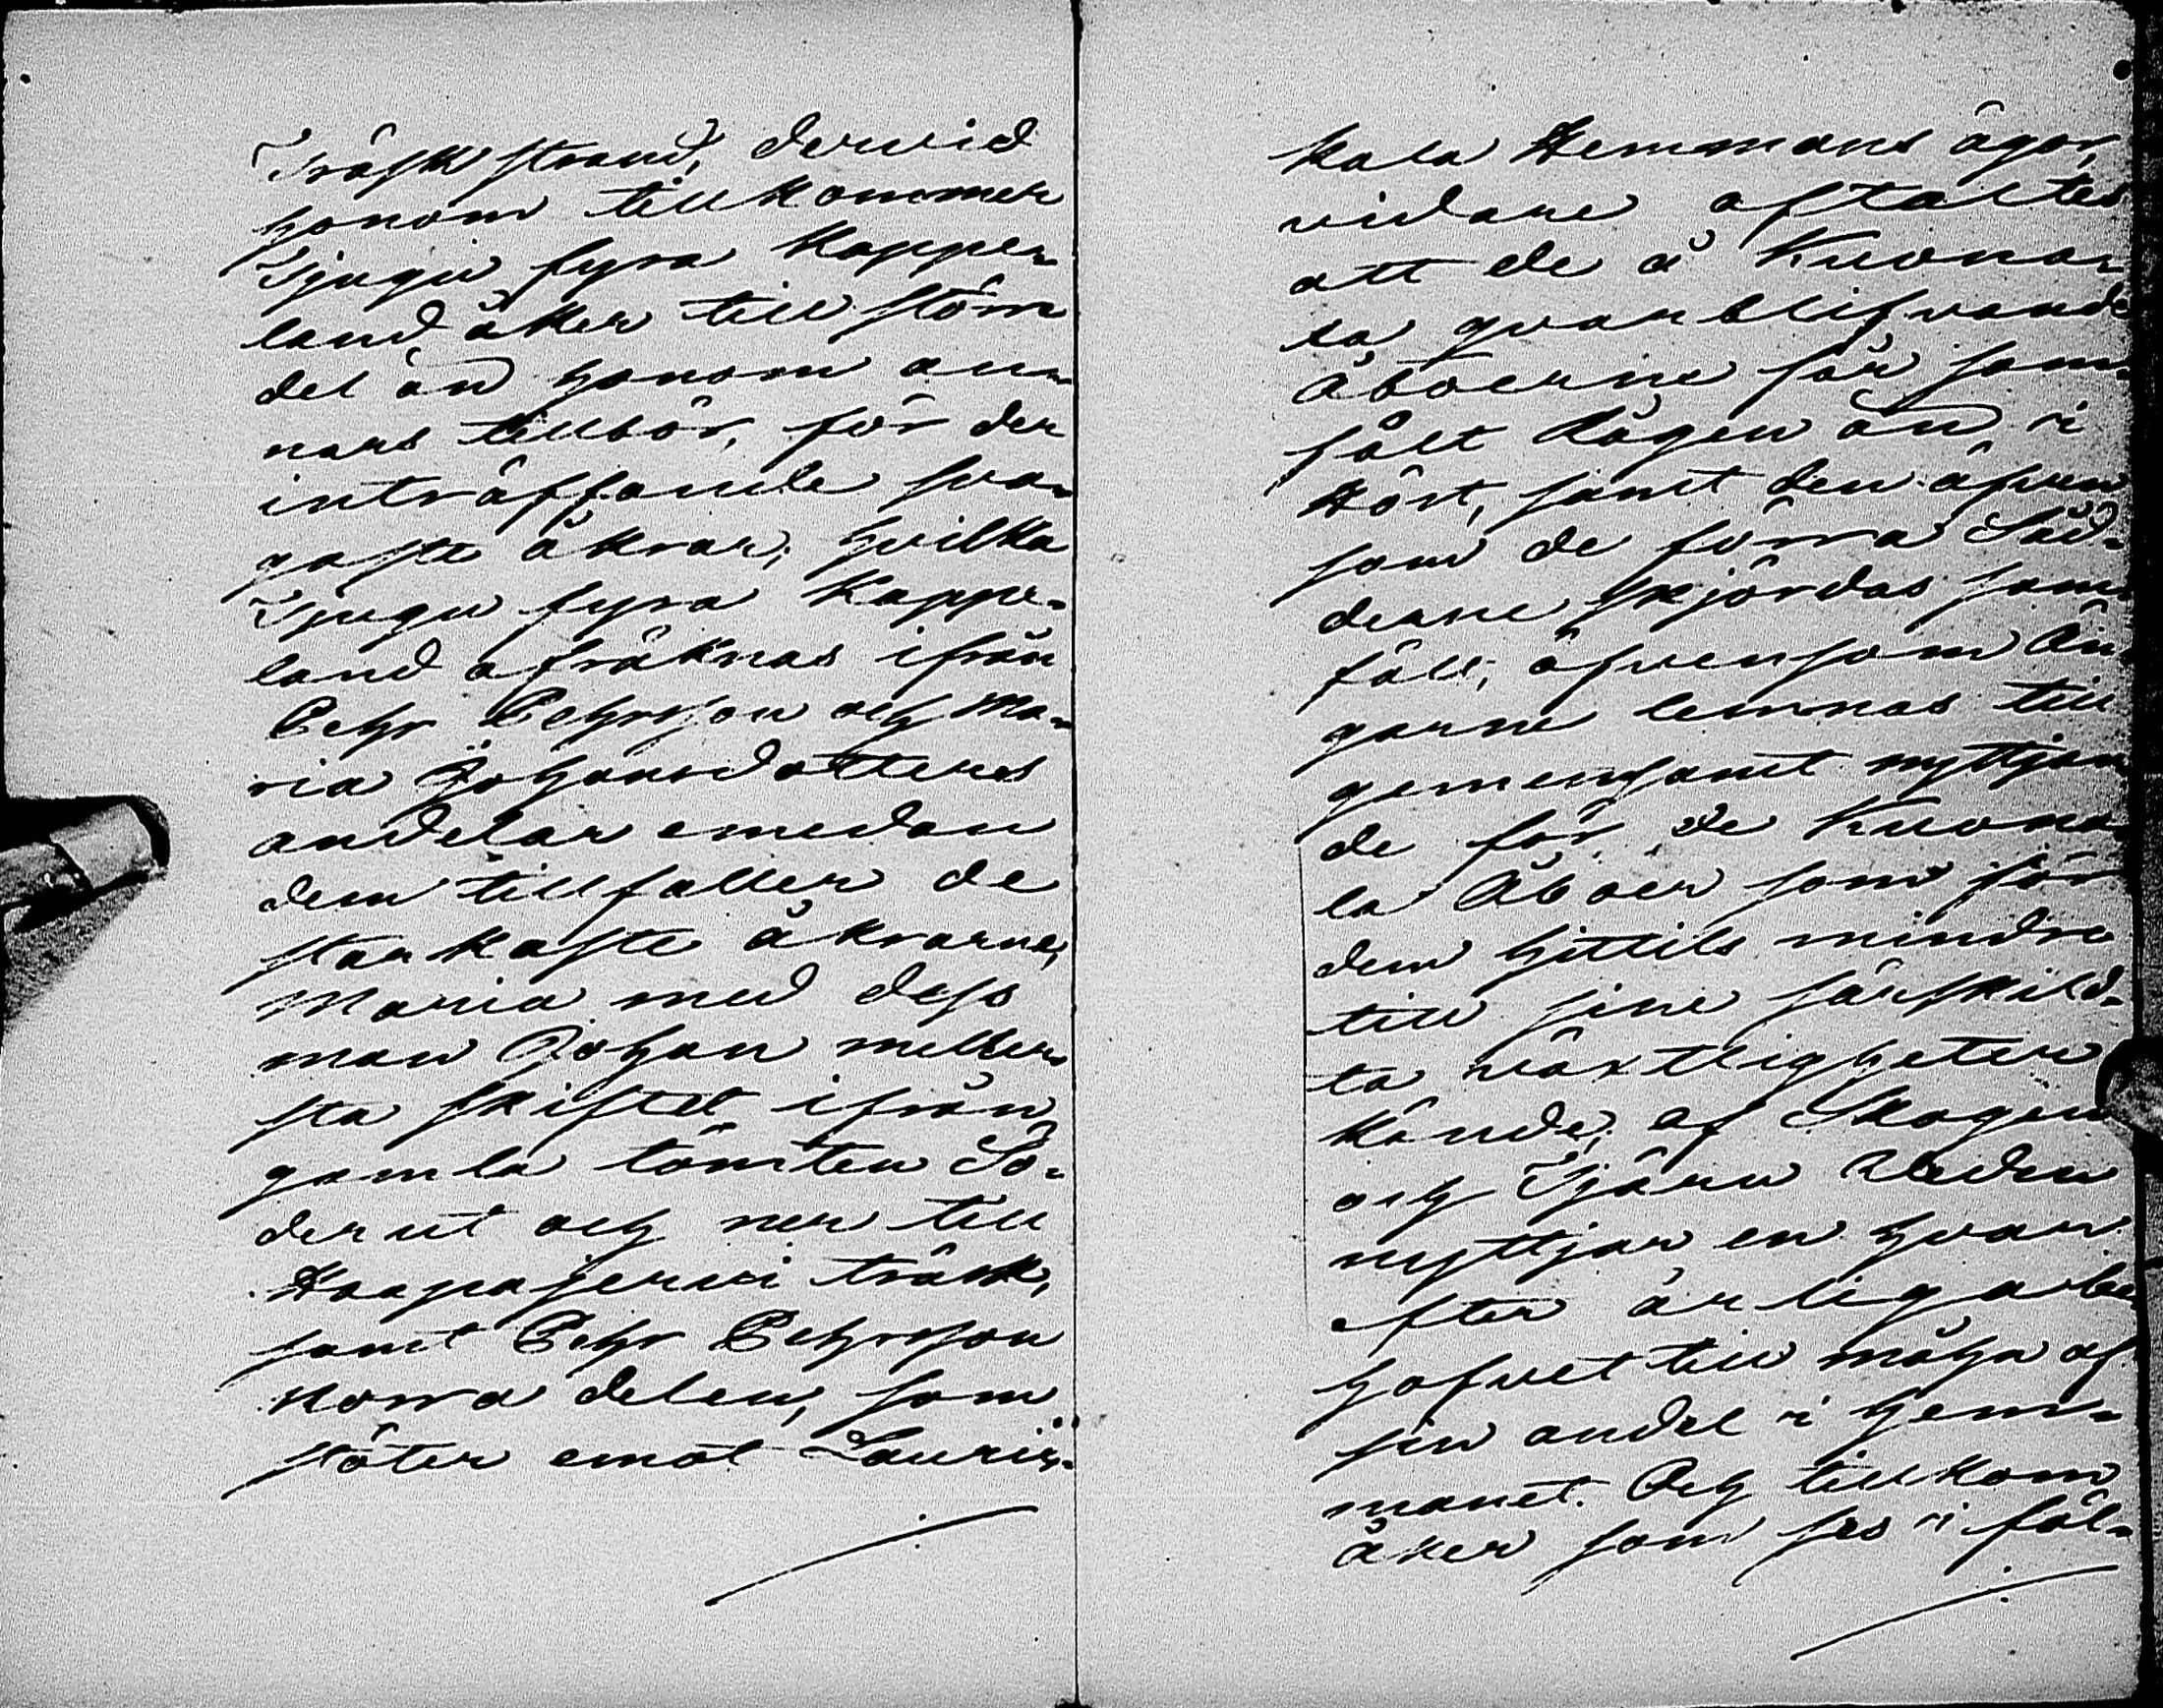 Träsk strand, dervid
honom tillkommer
Tjugu fyra Kappe-
land åker till störn
del än honom an-
nars tillhör, för der
inträffande sva-
gaste åkrar; hvilka
Tjugu fyra Kappe-
land afräknas ifrån
Pehr Pehrsson och Ma-
ria Johansdotters
andelar emedan
dem tillfaller de
starkaste åkrarne,
Maria med dess
man Johan meller-
sta skiftet ifrån
gamla tomten Sö-
der ut och ner till
Haapajervi träsk,
samt Pehr Pehrsson
Norra delen, som
stöter emot Lauris-
kala Hemmans ägor,
vidare aftaltes
att de å Kuona-
la qvarblifvande
Åboerne får sam-
fält Rågen än i
Höst, samt den äfven
som de förra Säd-
derne skjördas sam-
fält; äfvensom Än-
garne lemnas till
gemensamt nyttjan-
de för de Kuona-
la Åboer som för
dem hittils mindre
till sine särskild-
ta växtligheter
kände; af Skogen
och Tjäru Veden
nyttjar en hvar
efter årliga be-
hofvet till mohn af
sin andel i hem-
manet. Och tillkom
åker som ses i föl-